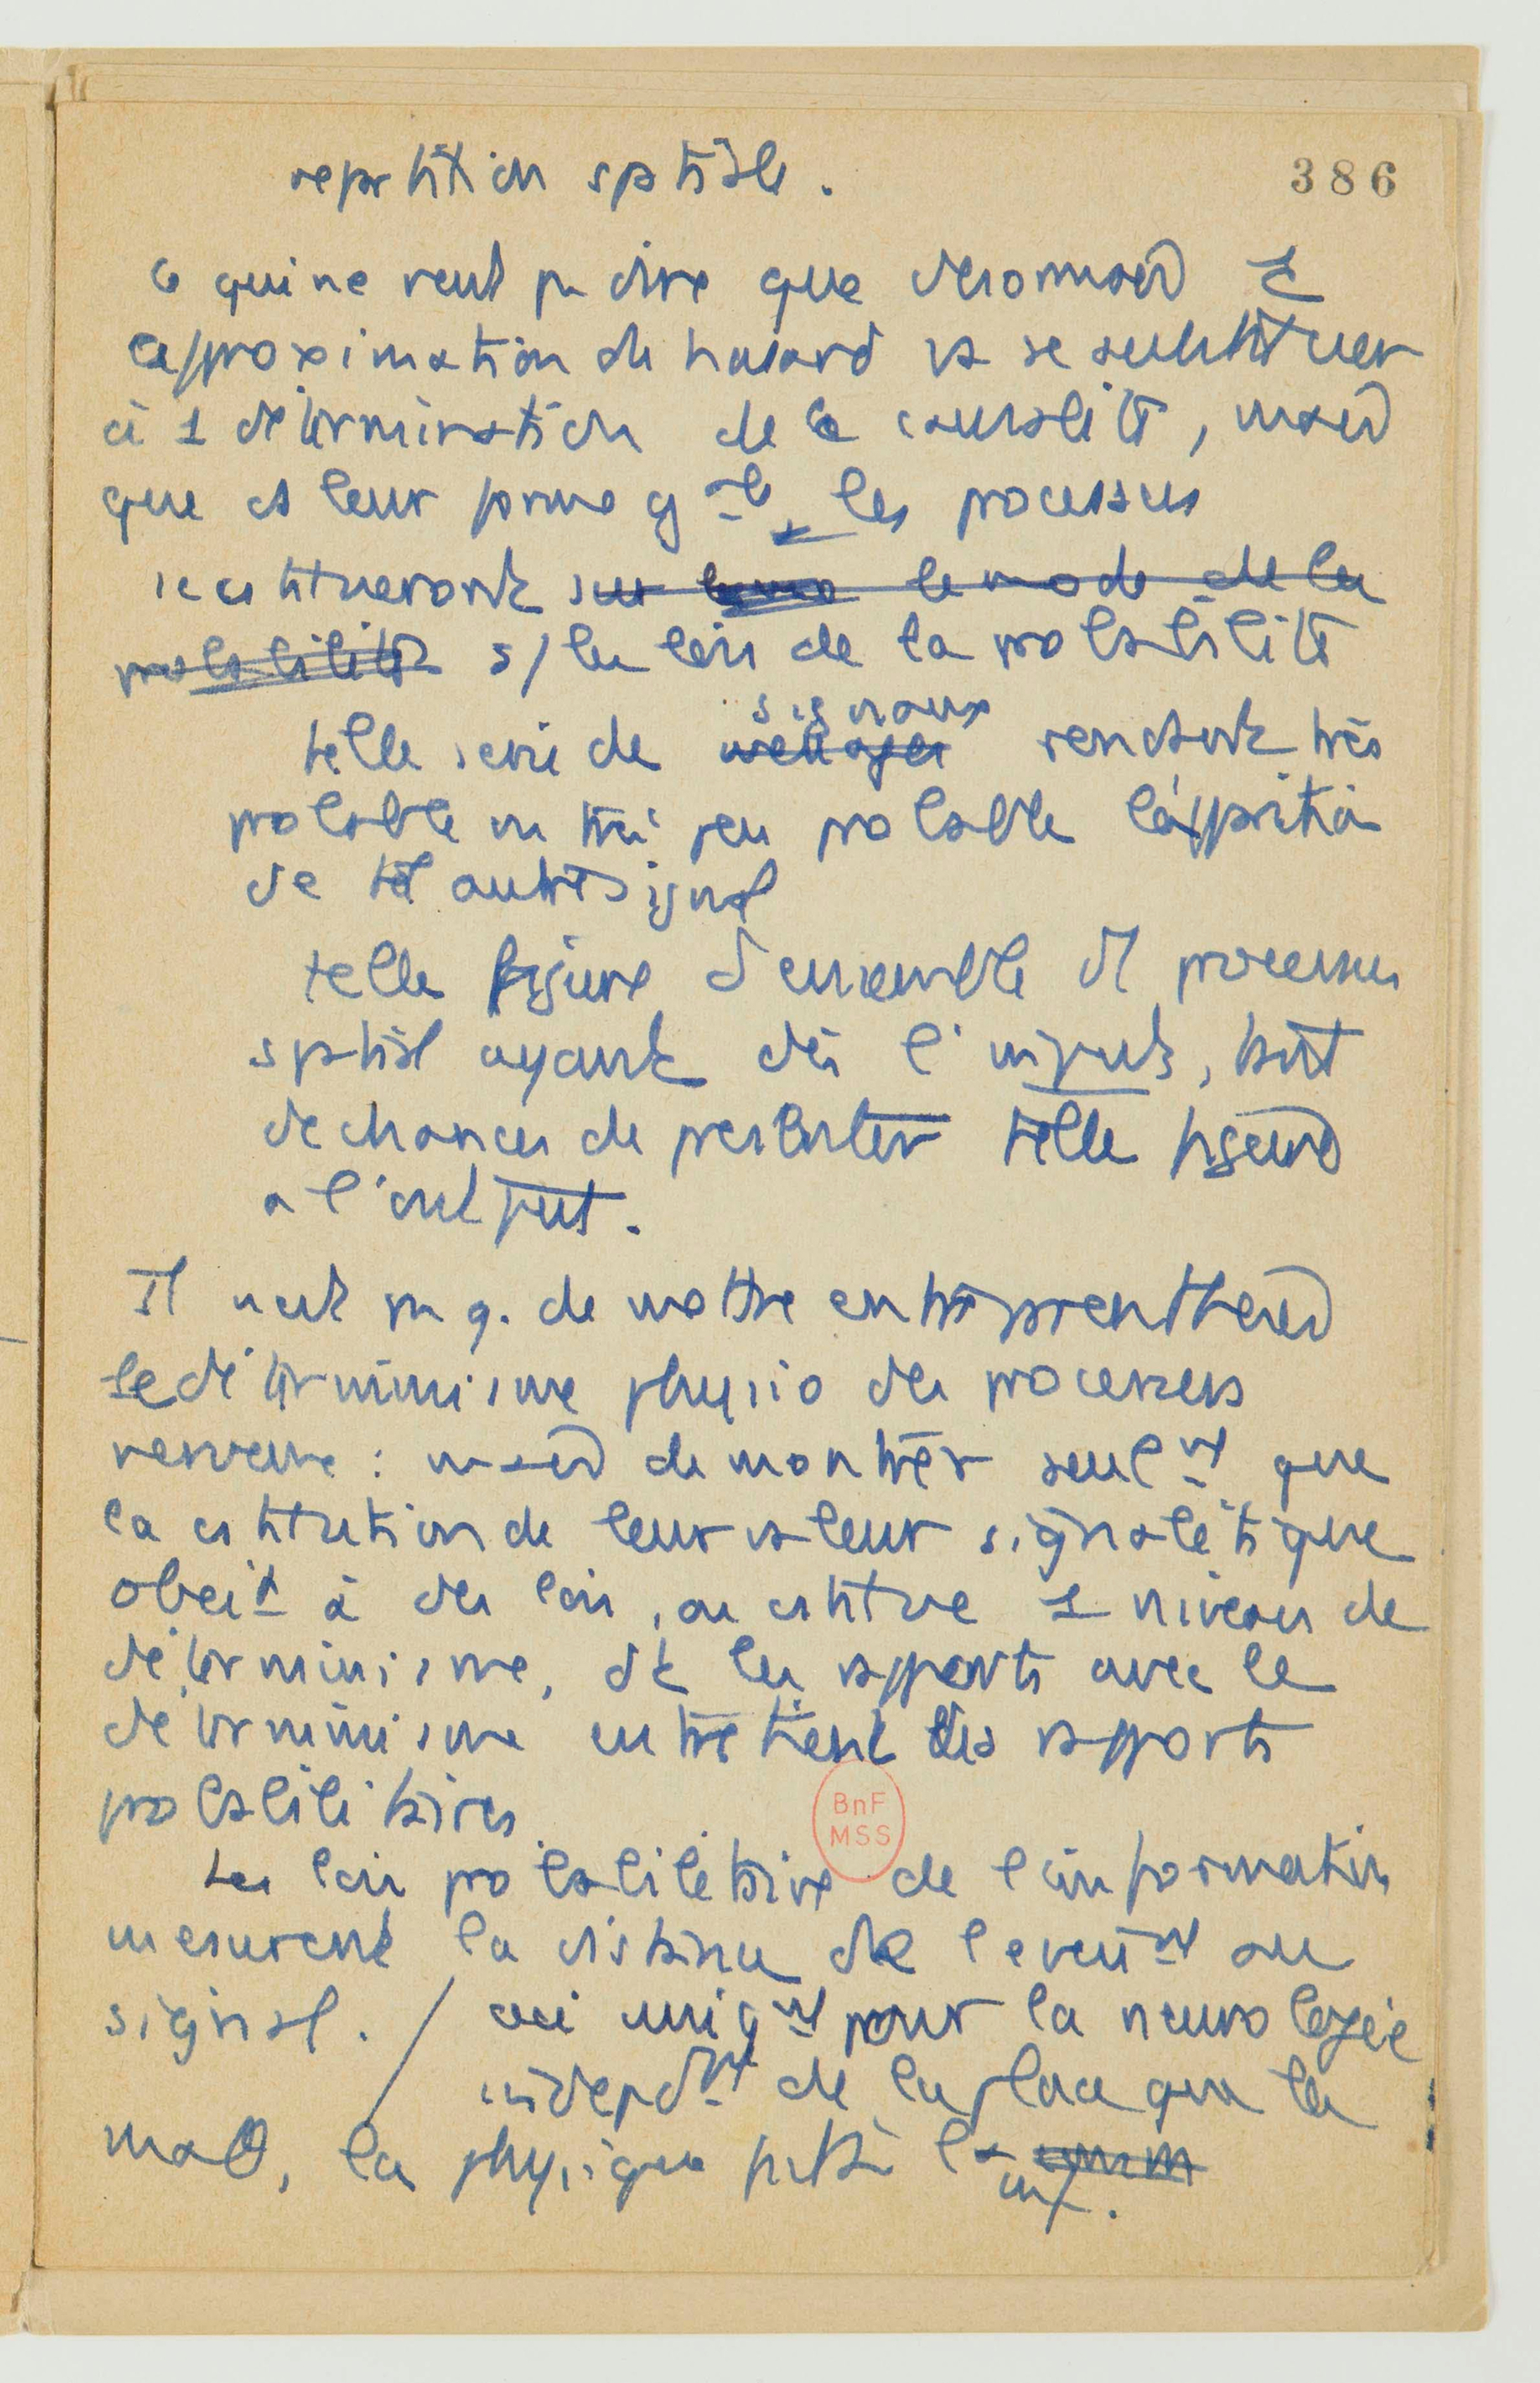 repartition spatiale.
386
Ce qui ne veut pas dire que desormais 1
approximation de hasard va se substituer
à 1 détermination de la causalité, mais
que ds leur forme gale les processus
se cstitueront sur le mode de la
probabilité s/ les lois de la probabilité
signaux
telle serie de messages rendant très
probable ou très peu probable l'apparition
de tel autre signal
telle figure d'ensemble d'1 processus
spatial ayant dès l'input, tant
de chances de telle figure
à l'output.
Il n'est pas q. de mettre entre parentheses
le déterminisme physio des processus
nerveux : mais de montrer seulnt que
la cstitution de leur valeur signalétique
obeit à des lois, ou cstitue 1 niveau de
déterminisme, dt les rapports avec le
déterminisme entretient des rapports
probabilitaires
Les lois probabilitaires de l'information
mesurent la distance de l'evennt au
signal. / ceci uniqnt pour la neurologie
independnt de la place que les
math, la physique à l'
inf.
BnF
MSS